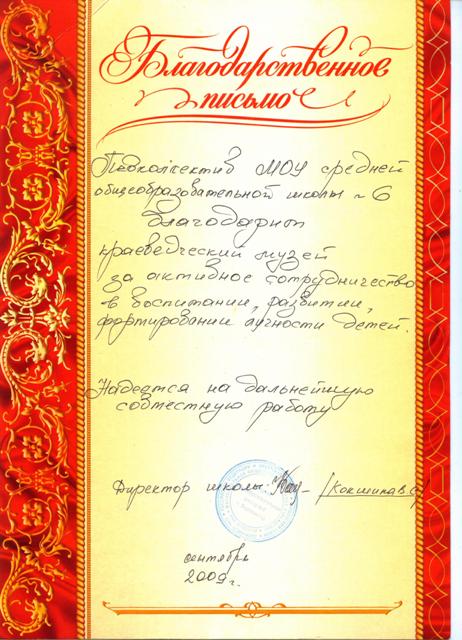 Благодарственное
письмо
Педколлектив МОУ средней
общеобразовательной школы № 6
благодарит
краеведческий музей
за активное сотрудничество
в воспитании, развитии,
формировании личности детей.
Надеемся на дальнейшую
совместную работу
Директор школы: /Кокшина В.С/
сентябрь
2009г.